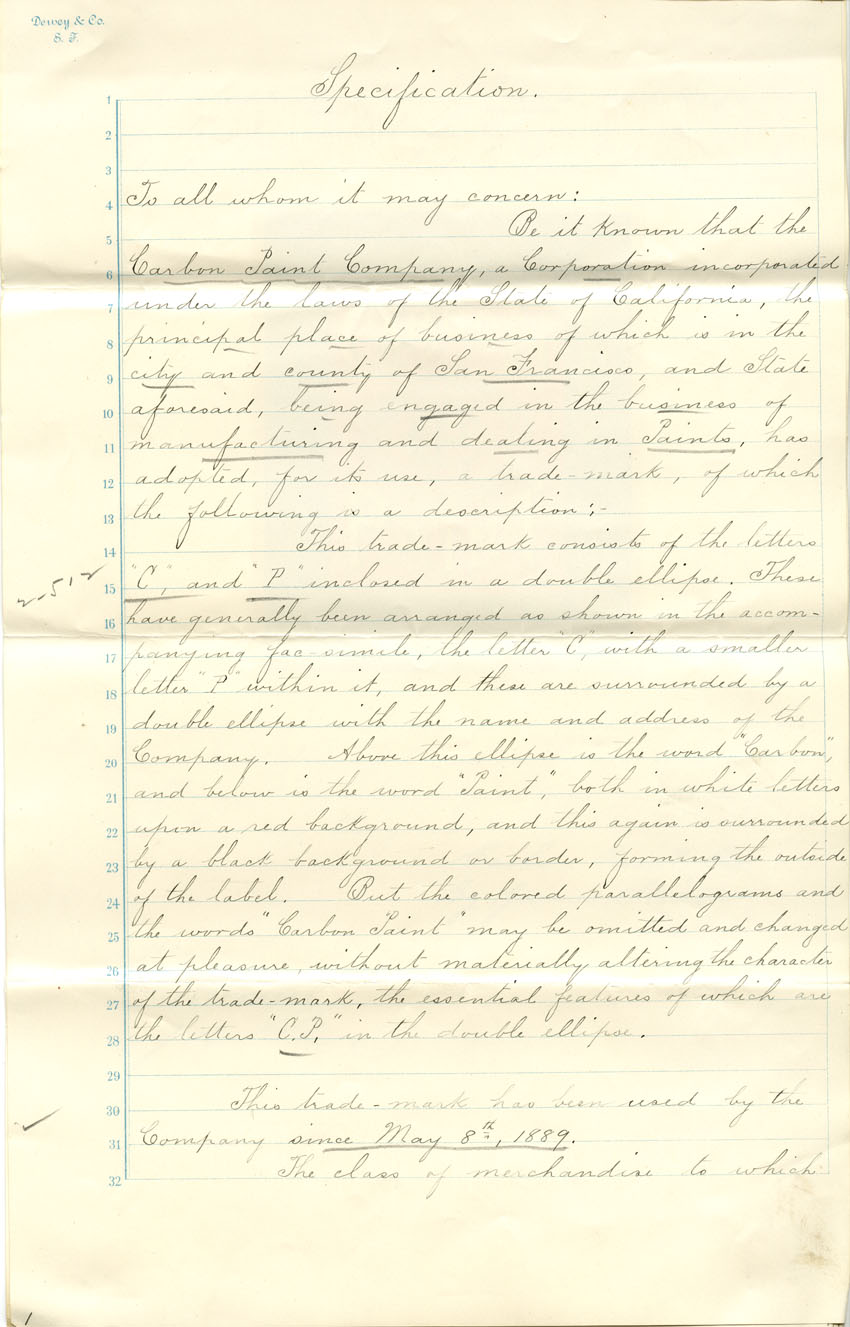 Dewey & Co.
S. F.
Specification.
1
2
3
4 To all whom it may concern:
5 Be it known that the
6 Carbon Paint Company, a Corporation incorporated
7 under the laws of the State of California, the
8 principal place of business of which is in the
9 city and county of San Francisco, and State
10 aforesaid, being engaged in the business of
11 manufacturing and dealing in Paints, has
12 adopted, for its use, a trade-mark, of which
13 the following is a description:-
14 This trade-mark consists of the letters
2-512
15 "C", and "P" inclosed in a double ellipse. These
16 have generally been arranged as shown in the accom-
17 panying fac-simile, the letter "C", with a smaller
18 letter "P" within it, and these are surrounded by a
19 double ellipse with the name and address of the
20 Company. Above this ellipse is the word "Carbon",
21 and below is the word "Paint", both in white letters
22 upon a red background, and this again is surrounded
23 by a black background or border, forming the outside
24 of the label. But the colored parallelograms and
25 the words "Carbon Paint" may be omitted and changed
26 at pleasure, without materially altering the character
27 of the trade-mark, the essential features of which are
28 the letters "C.P." in the double ellipse.
29
30 This trade-mark has been used by the
31 Company since May 8th, 1889.
32 The class of merchandise to which
1